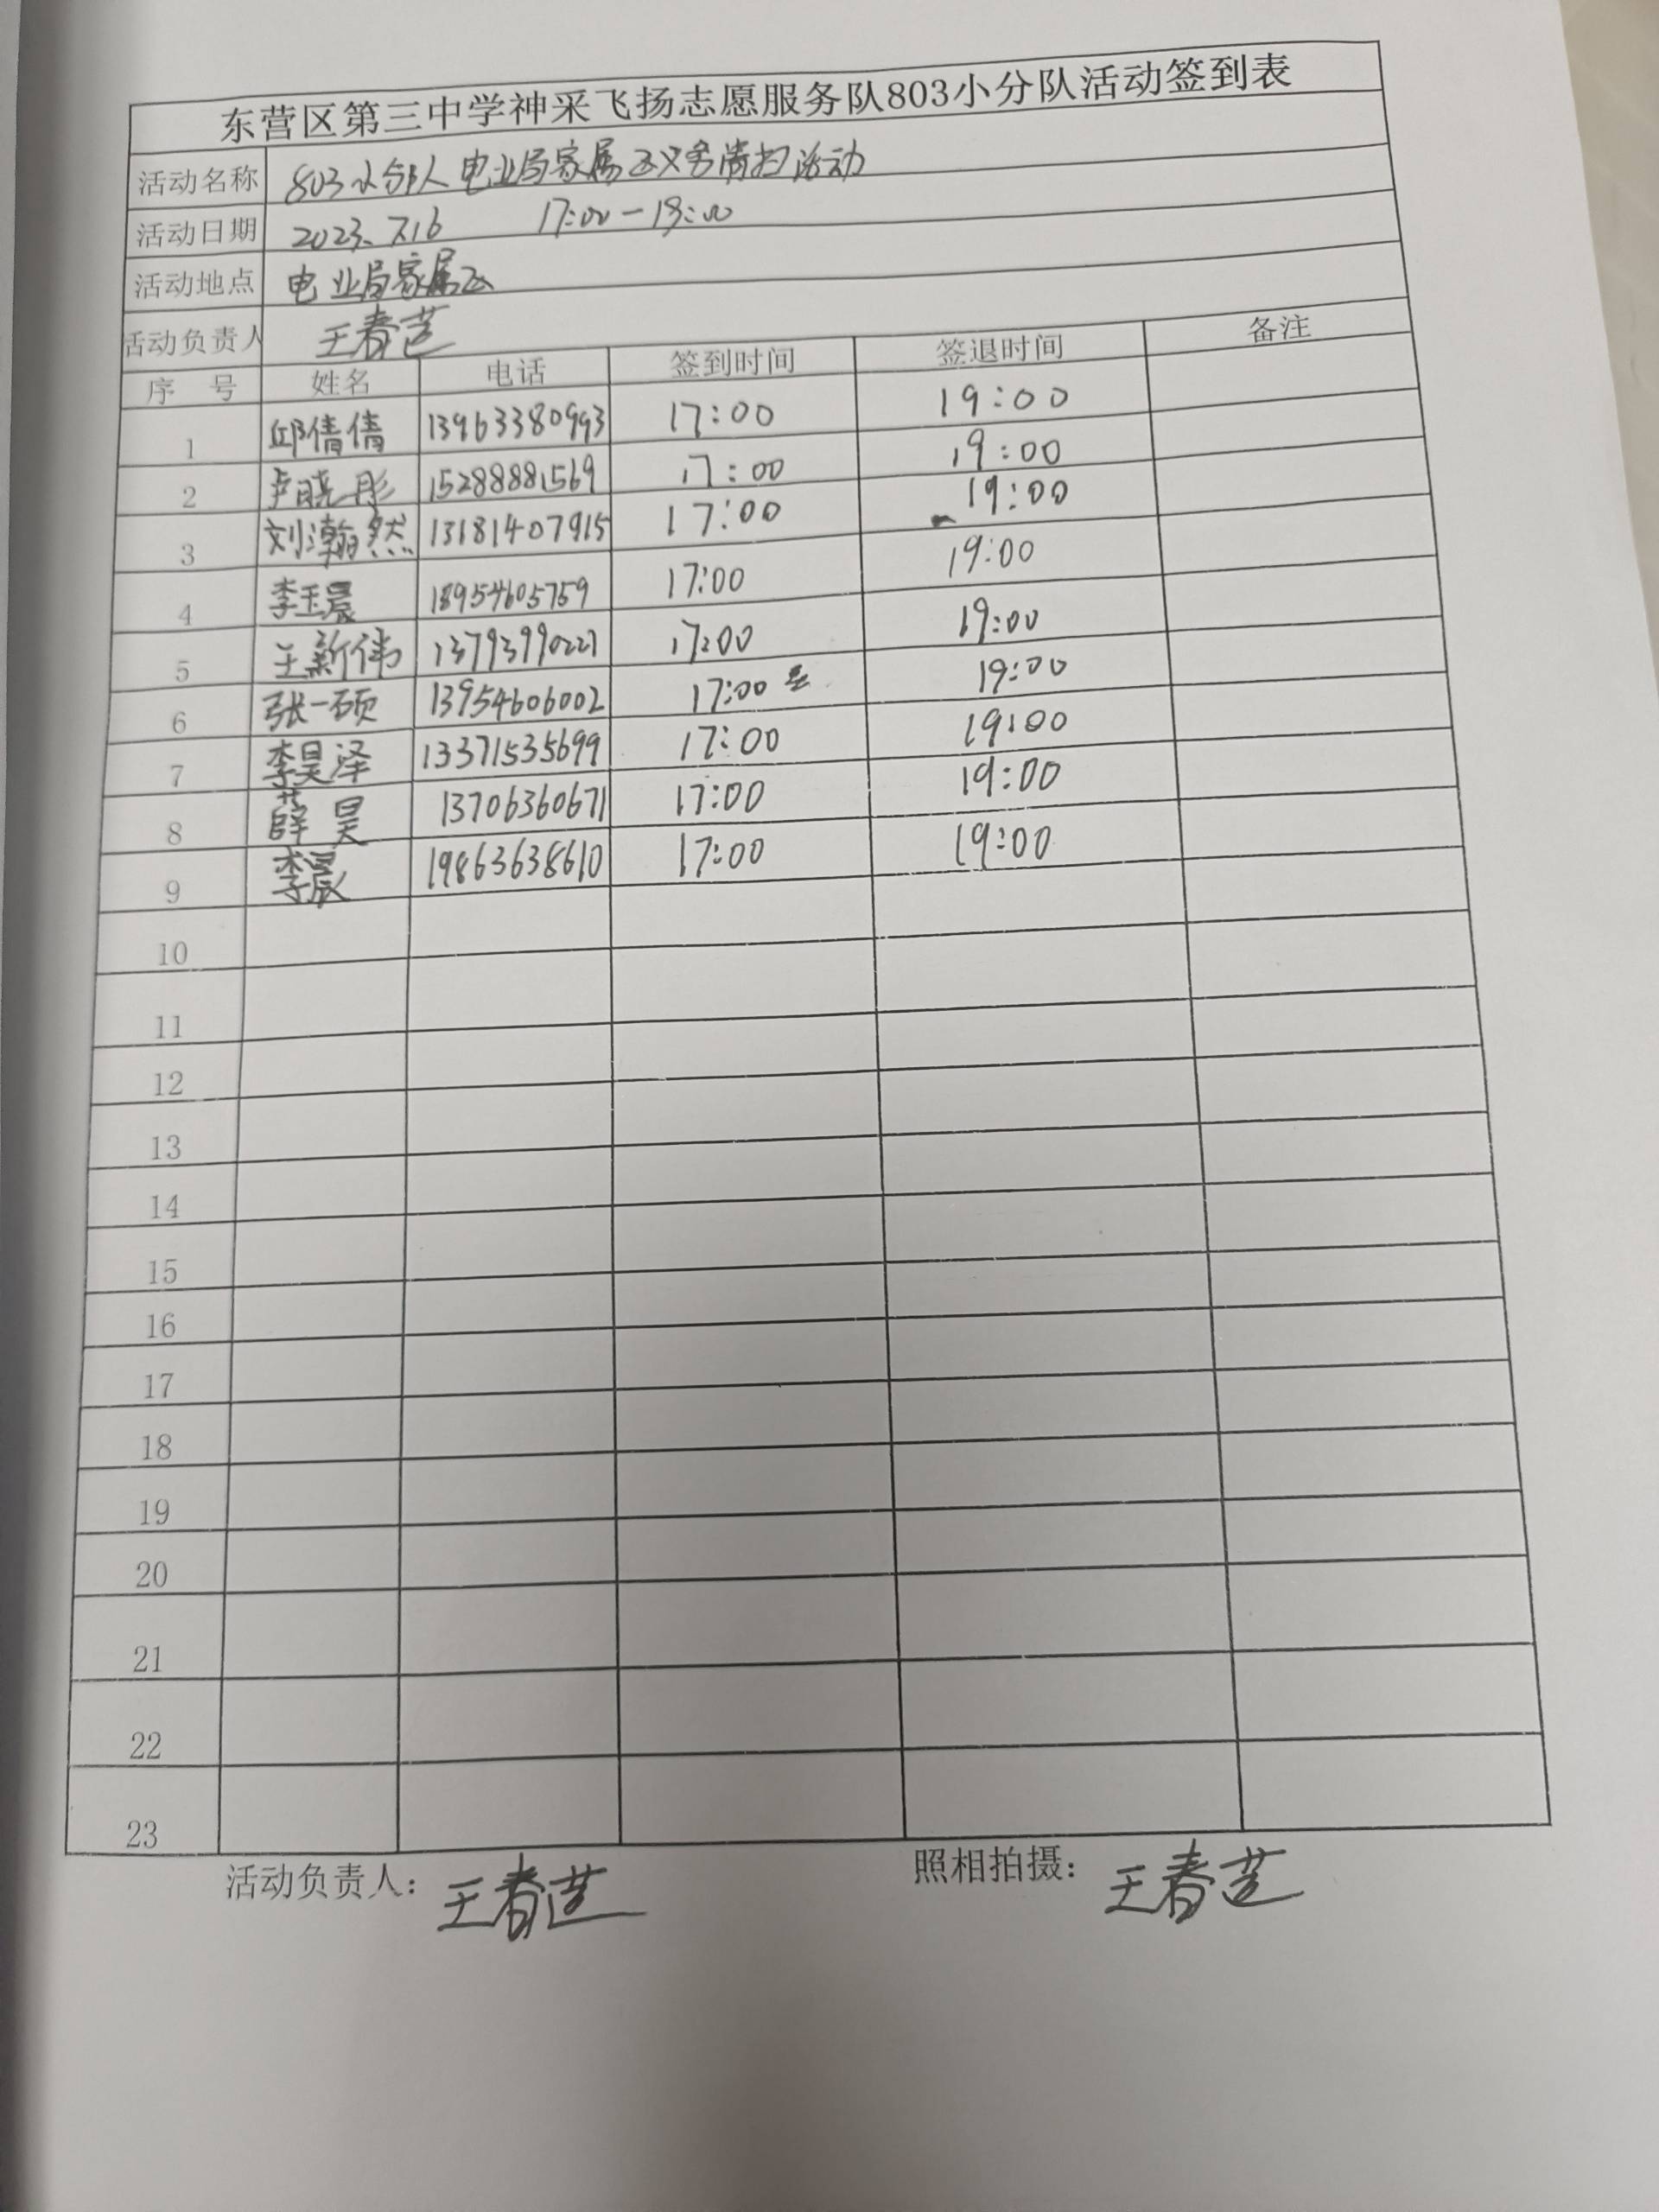 东营区第三中学神采飞扬志愿服务队803小分队活动签到表
活动名称 803小邻人电业局家属区义务清扫活动
活动日期 2023.7.16 17:00-19:00
活动地点 电业局家属区
活动负责人 王春芝
序 号 姓名 电话 签到时间 签退时间 备注
1 邱倩倩 13963380993 17:00 19:00
2 卢晓彤 15288881569 17:00 19:00
3 刘瀚然 13181407915 17:00 19:00
4 李玉晨 18954605759 17:00 19:00
5 王新伟 13793990227 17:00 19:00
6 张一硕 13954606002 17:00 19:00
7 李昊泽 13371535699 17:00 19:00
8 薛昊 13706360671 17:00 19:00
9 李晨 19863638610 17:00 19:00
10
11
12
13
14
15
16
17
18
19
20
21
22
23
活动负责人： 王春芝 照相拍摄： 王春芝